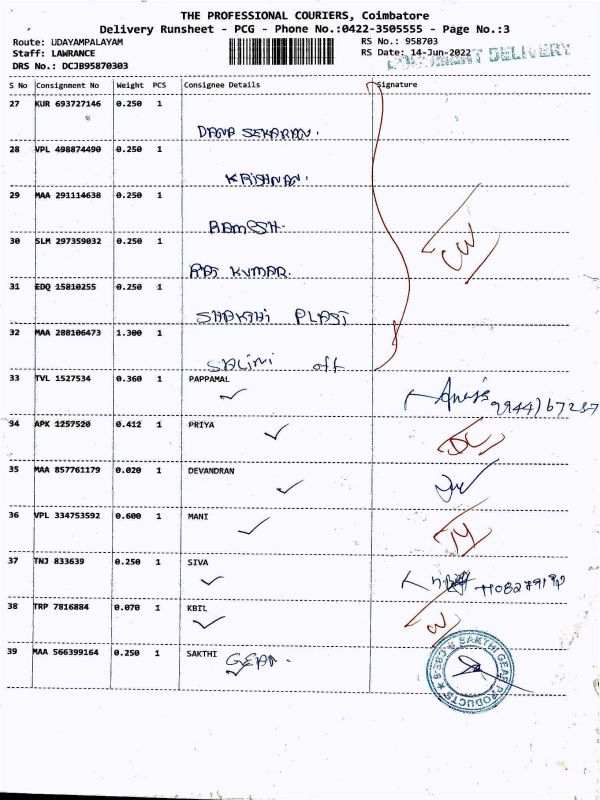 THE PROFESSIONAL COURIERS, Coimbatore
Delivery Runsheet - PCG - Phone No.:0422-3505555 - Page No.:3
Route: UDAYAMPALAYAM RS No.: 958703
Staff: LAWRANCE RS Date: 14-Jun-2022 DELIVERY
DRS No.: DCJB95870303
S No Consignment No Weight PCS Consignee Details Signature
27 KUR 693727146 0.250 1
DANA SEKARAN.
28 VPL 498874490 0.250 1
KRISHNAN.
29 MAA 291114638 0.250 1
RAMESH.
30 SLM 297359032 0.250 1
RAJ KUMAR.
31 EDQ 15810255 0.250 1
SHAKTHI PLAST
32 MAA 288106473 1.300 1
SALINI off
33 TVL 1527534 0.360 1 PAPPAMAL
34 APK 1257520 0.412 1 PRIYA
35 MAA 857761179 0.020 1 DEVANDRAN
36 VPL 334753592 0.600 1 MANI
37 TNJ 833639 0.250 1 SIVA
38 TRP 7816884 0.070 1 KBIL
39 MAA 566399164 0.250 1 SAKTHI GEAR.
SAKTHI GEAR PRODUCTS